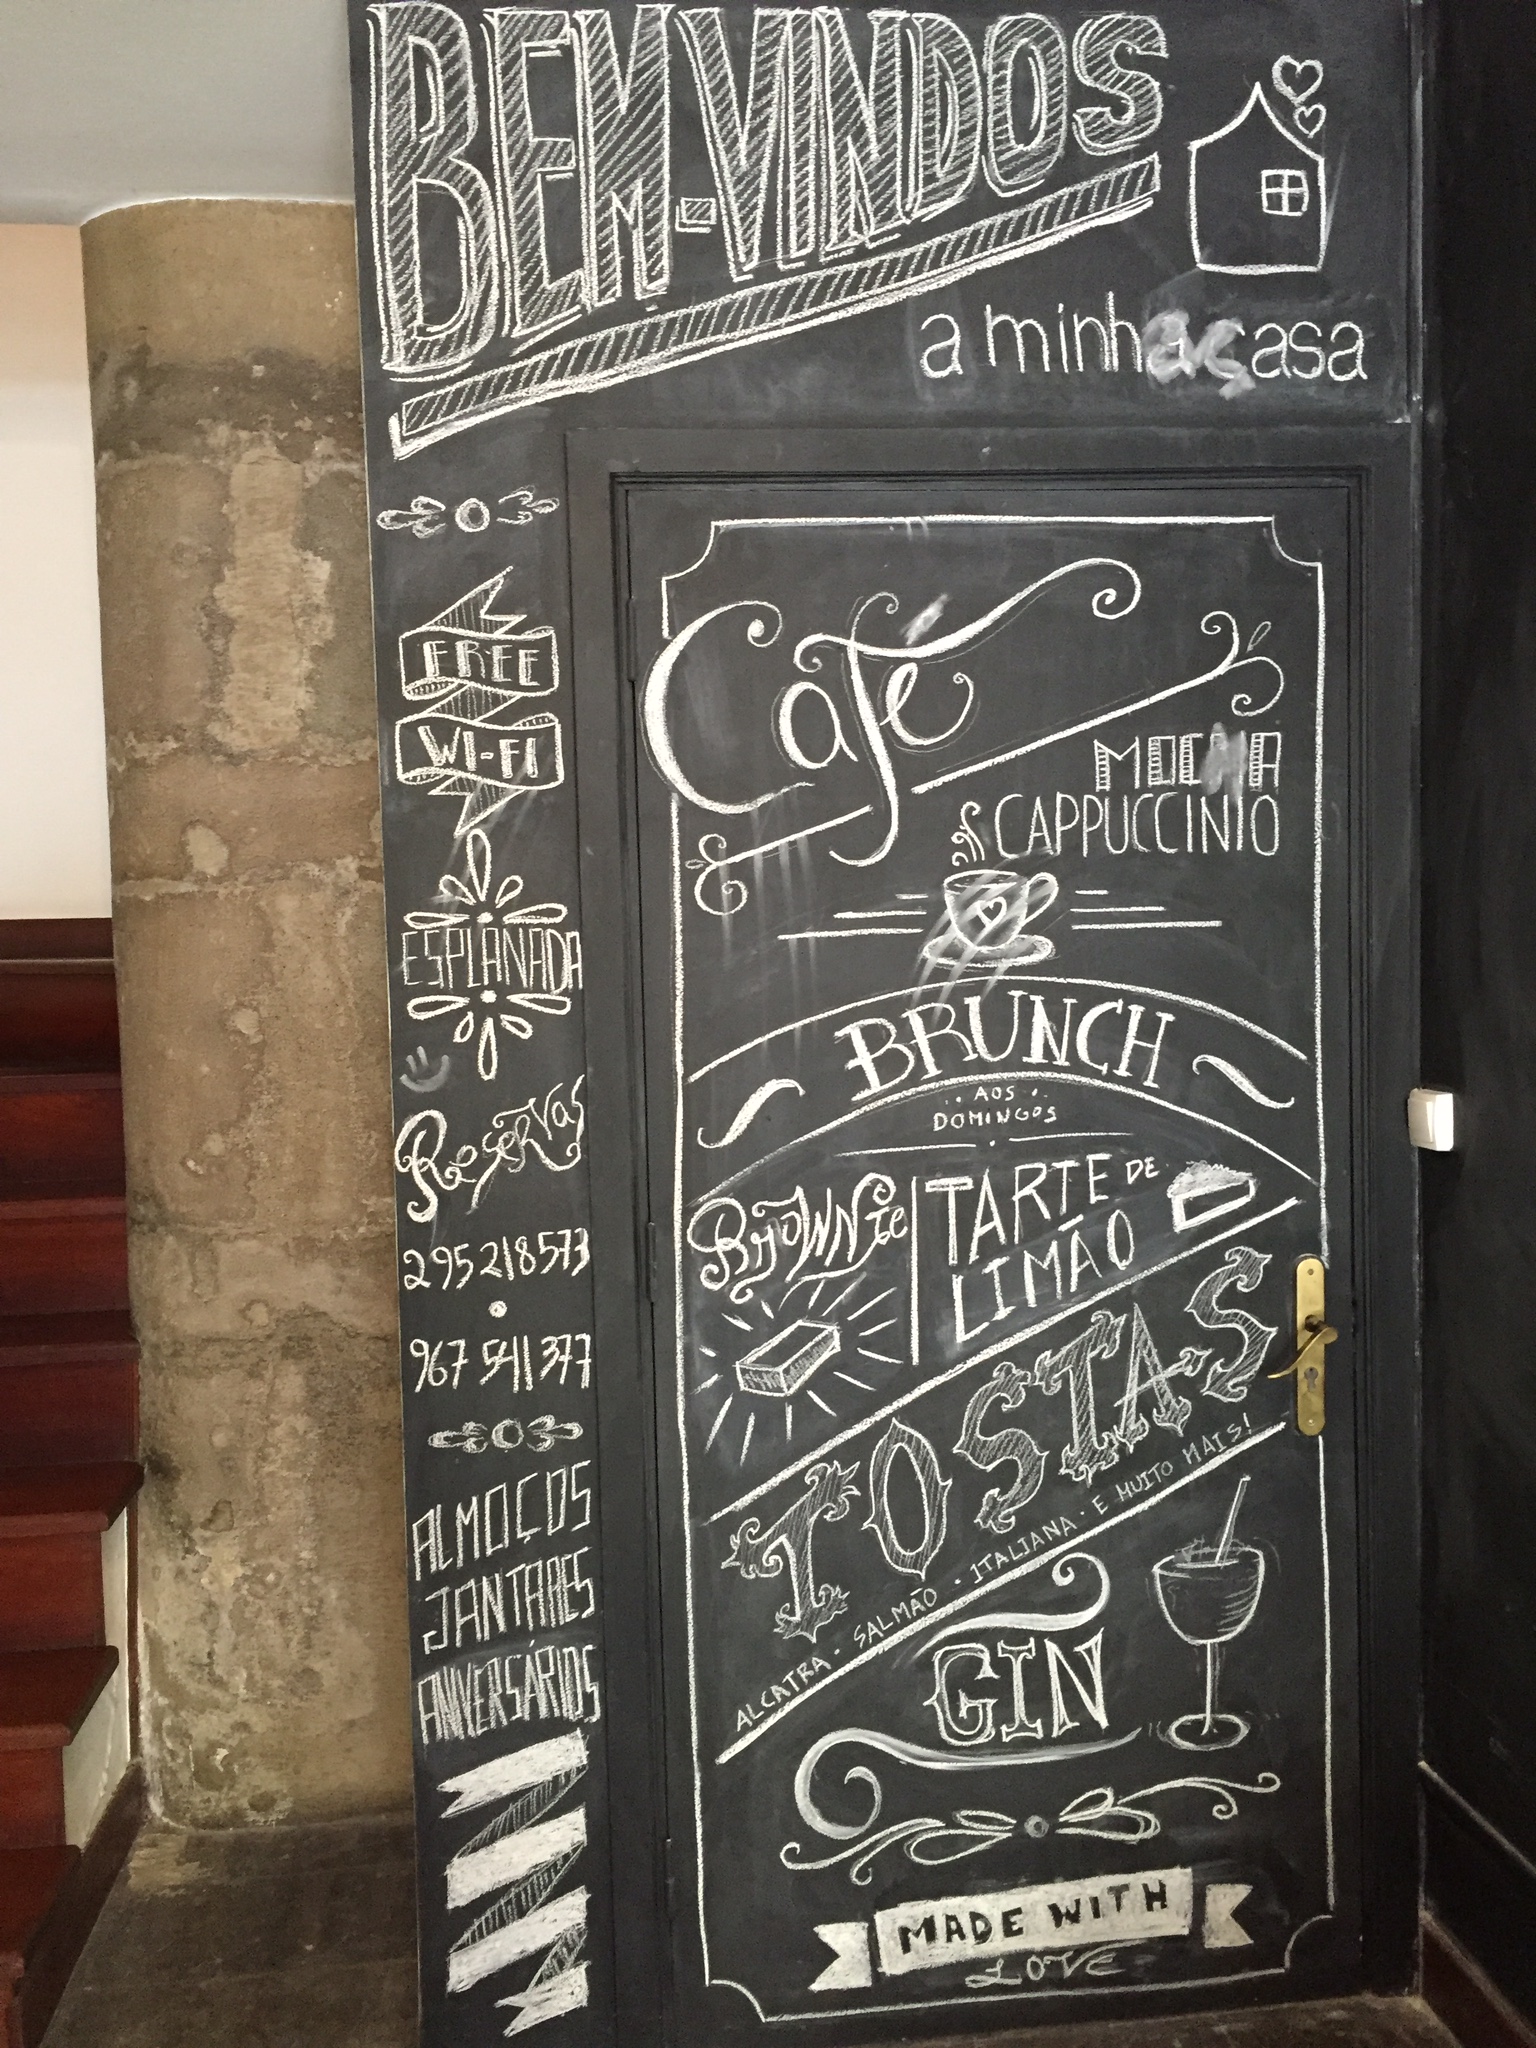 BEM-VINDOS
a minha casa
FREE
WI-FI
ESPLANADA
Reservas
295 218 573
967 541 377
ALMOÇOS
JANTARES
ANIVERSÁRIOS
Café
MOCHA
CAPPUCCINIO
BRUNCH
AOS
DOMINGOS
BROWNIE
TARTE DE
LIMÃO
TOSTAS
ALCATRA · SALMÃO · ITALIANA · E MUITO MAIS!
GIN
MADE WITH
LOVE